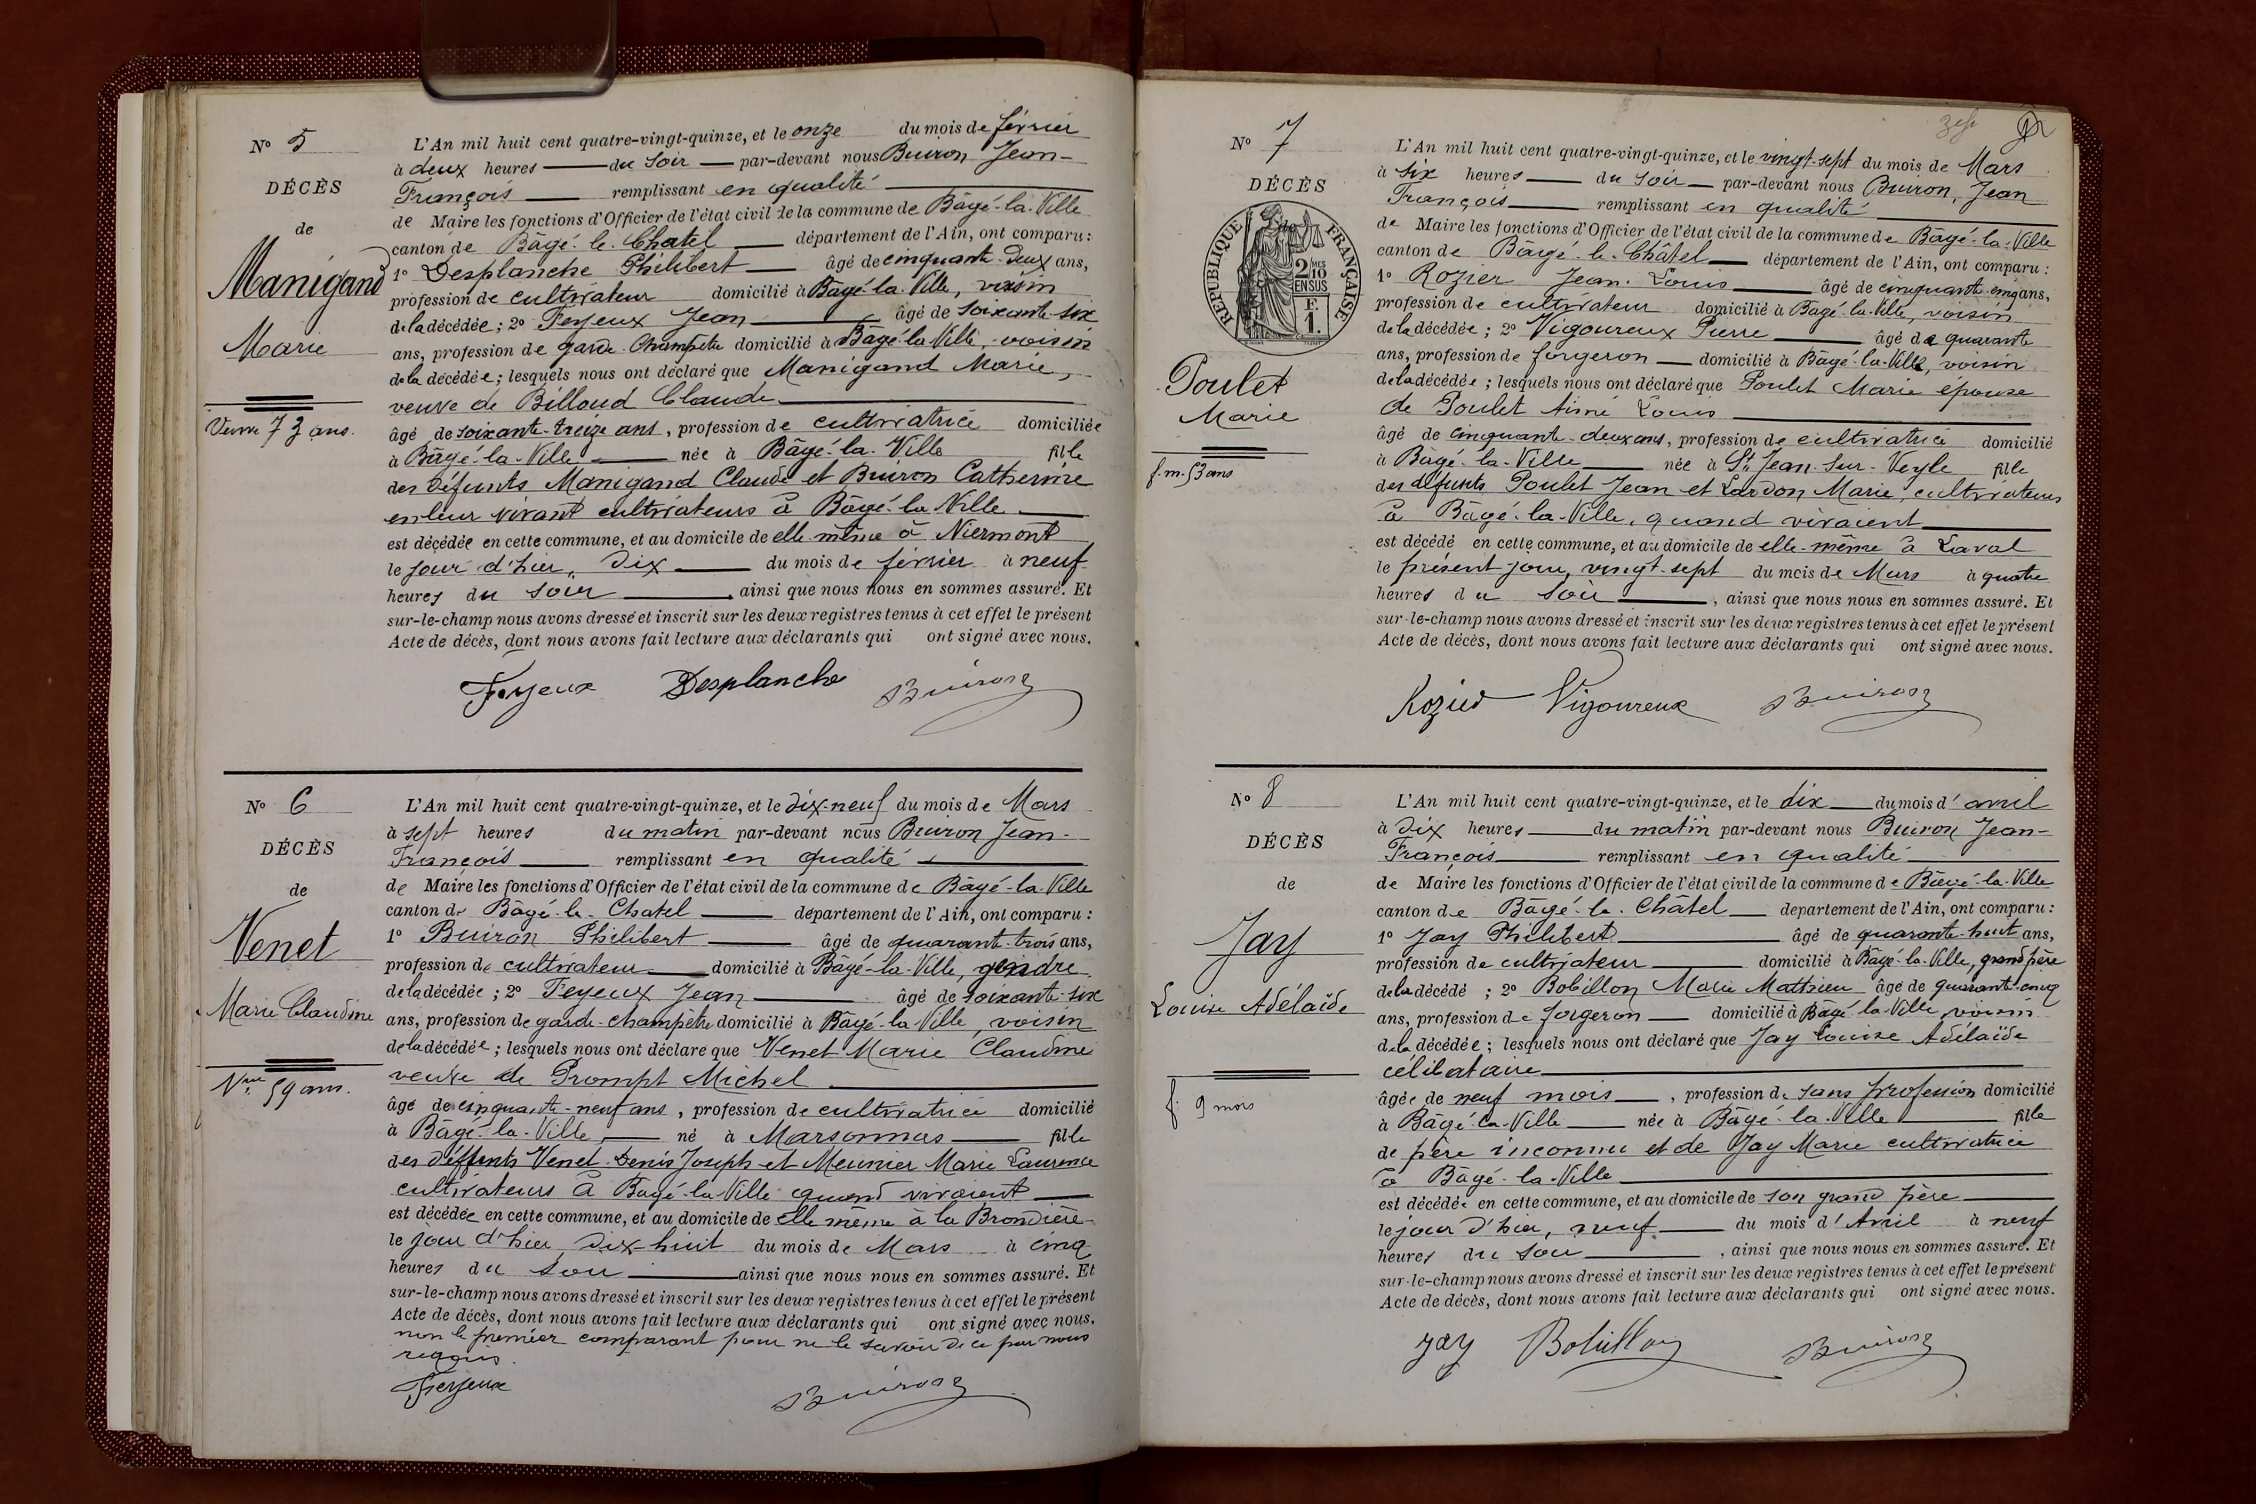 N° 5
DÉCÈS
de
Manigand
Marie
Veuve 73 ans.
L'An mil huit cent quatre-vingt-quinze, et le onze du mois de février
à deux heures du soir par-devant nous Buiron Jean-
François remplissant en qualité
de Maire les fonctions d'Officier de l'état civil de la commune de Bâgé-la-Ville
canton de Bâgé-le-Chatel département de l'Ain, ont comparu :
1° Desplanche Philibert âgé de cinquante-deux ans,
profession de cultivateur domicilié à Bâgé-la-Ville, voisin
de la décédée ; 2° Feyeux Jean âgé de soixante-six
ans, profession de garde-Champêtre domicilié à Bâgé-la-Ville, voisin
de la décédée ; lesquels nous ont déclaré que Manigand Marie,
veuve de Billoud Claude
âgé de soixante-treize ans, profession de cultivatrice domiciliée
à Bâgé-la-Ville née à Bâgé-la-Ville fille
des défunts Manigand Claude et Buiron Catherine
en leur vivant cultivateurs à Bâgé-la-Ville
est décédée en cette commune, et au domicile de elle-même à Niermont
le jour d'hier, dix du mois de février à neuf
heures du soir ainsi que nous nous en sommes assuré. Et
sur-le-champ nous avons dressé et inscrit sur les deux registres tenus à cet effet le présent
Acte de décès, dont nous avons fait lecture aux déclarants qui ont signé avec nous.
Feyeux Desplanche Buiron
N° 6
DÉCÈS
de
Venet
Marie Claudine
Vve 59 ans.
L'An mil huit cent quatre-vingt-quinze, et le dix-neuf du mois de Mars
à sept heures du matin par-devant nous Buiron Jean-
François remplissant en qualité
de Maire les fonctions d'Officier de l'état civil de la commune de Bâgé-la-Ville
canton de Bâgé-le-Chatel département de l'Ain, ont comparu :
1° Buiron Philibert âgé de quarante-trois ans,
profession de cultivateur domicilié à Bâgé-la-Ville, gendre
de la décédée ; 2° Feyeux Jean âgé de soixante-six
ans, profession de garde-champêtre domicilié à Bâgé-la-Ville, voisin
de la décédée ; lesquels nous ont déclaré que Venet Marie Claudine
veuve de Prompt Michel
âgé de cinquante-neuf ans, profession de cultivatrice domicilié
à Bâgé-la-Ville né à Marsonnas fille
des déffunts Venet Denis Joseph et Meunier Marie Laurence
cultivateurs à Bagé-la-Ville quand vivaient
est décédée en cette commune, et au domicile de elle même à la Brondière
le jour d'hier, dix-huit du mois de Mars à cinq
heures du soir ainsi que nous nous en sommes assuré. Et
sur-le-champ nous avons dressé et inscrit sur les deux registres tenus à cet effet le présent
Acte de décès, dont nous avons fait lecture aux déclarants qui ont signé avec nous.
non le premier comparant pour ne le savoir de ce par nous
requis.
Feyeux Buiron
N° 7
DÉCÈS
de
RÉPUBLIQUE FRANÇAISE
2/10 MES
EN SUS
F.
1.
Poulet
Marie
f. m. 53 ans
L'An mil huit cent quatre-vingt-quinze, et le vingt-sept du mois de Mars
à six heures du soir par-devant nous Buiron, Jean
François remplissant en qualité
de Maire les fonctions d'Officier de l'état civil de la commune de Bâgé-la-Ville
canton de Bâgé-le-Châtel département de l'Ain, ont comparu :
1° Rozier Jean-Louis âgé de cinquante-cinq ans,
profession de cultivateur domicilié à Bagé-la-Ville, voisin
de la décédée ; 2° Vigoureux Pierre âgé de quarante
ans, profession de forgeron domicilié à Bâgé-la-Ville, voisin
de la décédée ; lesquels nous ont déclaré que Poulet Marie épouse
de Poulet Aimé Louis
âgé de cinquante-deux ans, profession de cultivatrice domicilié
à Bâgé-la-Ville née à St Jean-sur-Veyle fille
des défunts Poulet Jean et Lardon Marie, cultivateurs
à Bâgé-la-Ville, quand vivaient
est décédé en cette commune, et au domicile de elle-même à Laval
le présent jour, vingt-sept du mois de Mars à quatre
heures du soir, ainsi que nous nous en sommes assuré. Et
sur-le-champ nous avons dressé et inscrit sur les deux registres tenus à cet effet le présent
Acte de décès, dont nous avons fait lecture aux déclarants qui ont signé avec nous.
Rozier Vigoureux Buiron
N° 8
DÉCÈS
de
Jay
Louise Adélaïde
f. 9 mois
L'An mil huit cent quatre-vingt-quinze, et le dix du mois d'avril
à dix heures du matin par-devant nous Buiron Jean-
François remplissant en qualité
de Maire les fonctions d'Officier de l'état civil de la commune de Bâgé-la-Ville
canton de Bâgé-le-Châtel département de l'Ain, ont comparu :
1° Jay Philibert âgé de quarante-huit ans,
profession de cultivateur domicilié à Bâgé-la-Ville, grand père
de la décédé ; 2° Bobillon Marie Mathieu âgé de quarante-cinq
ans, profession de forgeron domicilié à Bâgé la-Ville voisin
de la décédée ; lesquels nous ont déclaré que Jay Louise Adélaïde
célibataire
âgée de neuf mois, profession de sans profession domicilié
à Bâgé-la-Ville née à Bâgé-la-Ville fille
de père inconnu et de Jay Marie cultivatrice
à Bâgé-la-Ville
est décédée en cette commune, et au domicile de son grand père
le jour d'hier, neuf du mois d'Avril à neuf
heures du soir, ainsi que nous nous en sommes assuré. Et
sur-le-champ nous avons dressé et inscrit sur les deux registres tenus à cet effet le présent
Acte de décès, dont nous avons fait lecture aux déclarants qui ont signé avec nous.
Jay Bobillon Buiron